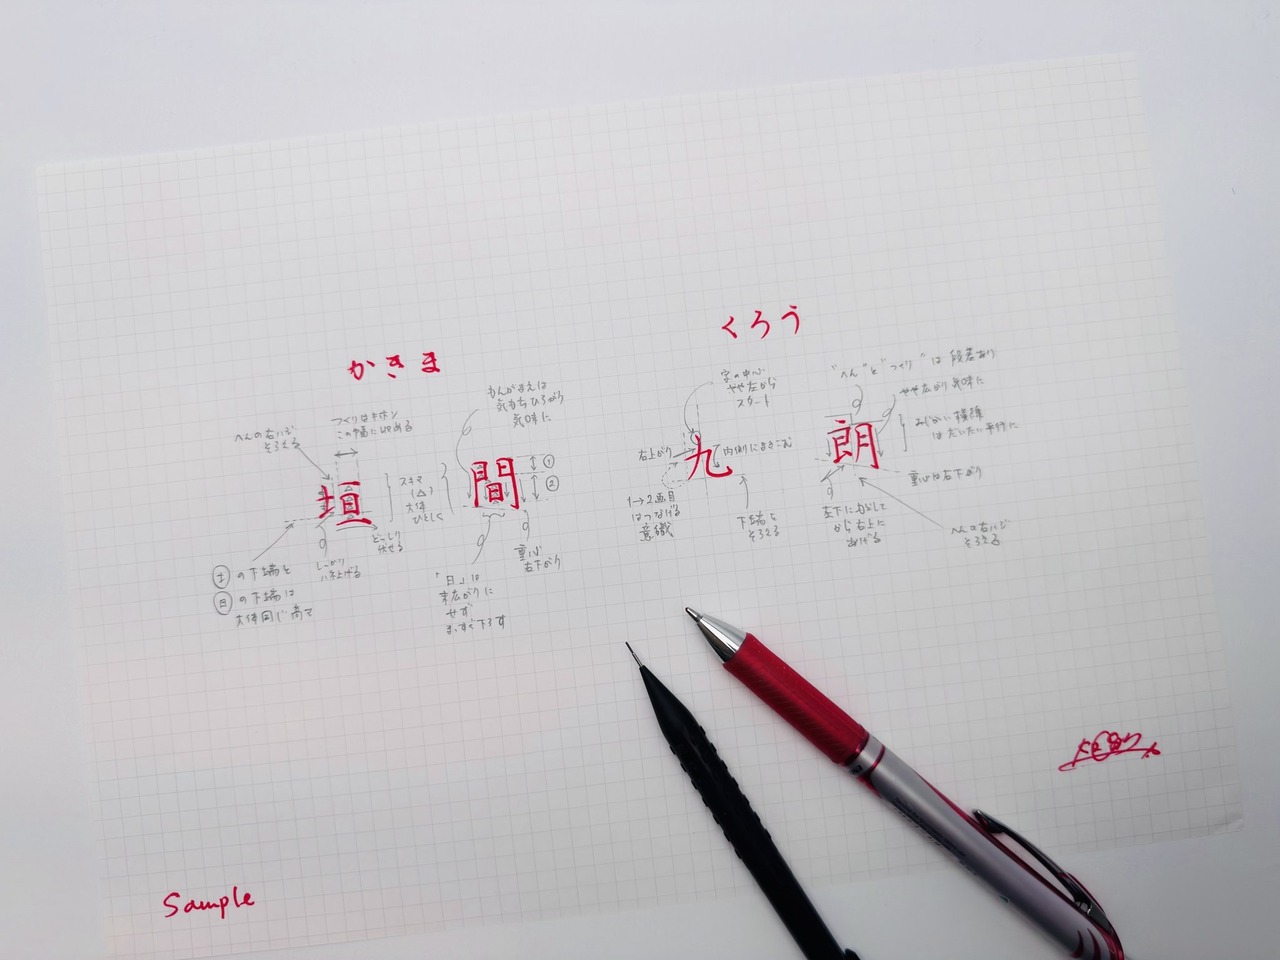 かきま
くろう
垣間
九朗
へんの右ハジ
そろえる
つくりはキホン
この幅に収める
スキマ
(△)
大体
ひとしく
どっしり
伏せる
しっかり
ハネ上げる
土の下端と
日の下端は
大体同じ高さ
もんがまえは
気もちひろがり
気味に
①
②
「日」は
末広がりに
せず
まっすぐ下ろす
重心
右下がり
字の中心
やや左から
スタート
右上がり
内側にまきこむ
1→2画目
はつなげる
意識
下端を
そろえる
"へん"と"つくり"は段差あり
やや広がり気味に
みじかい横線
はだいたい平行に
重心は右下がり
左下に
から右上に
あげる
へんの右ハジ
そろえる
Sample